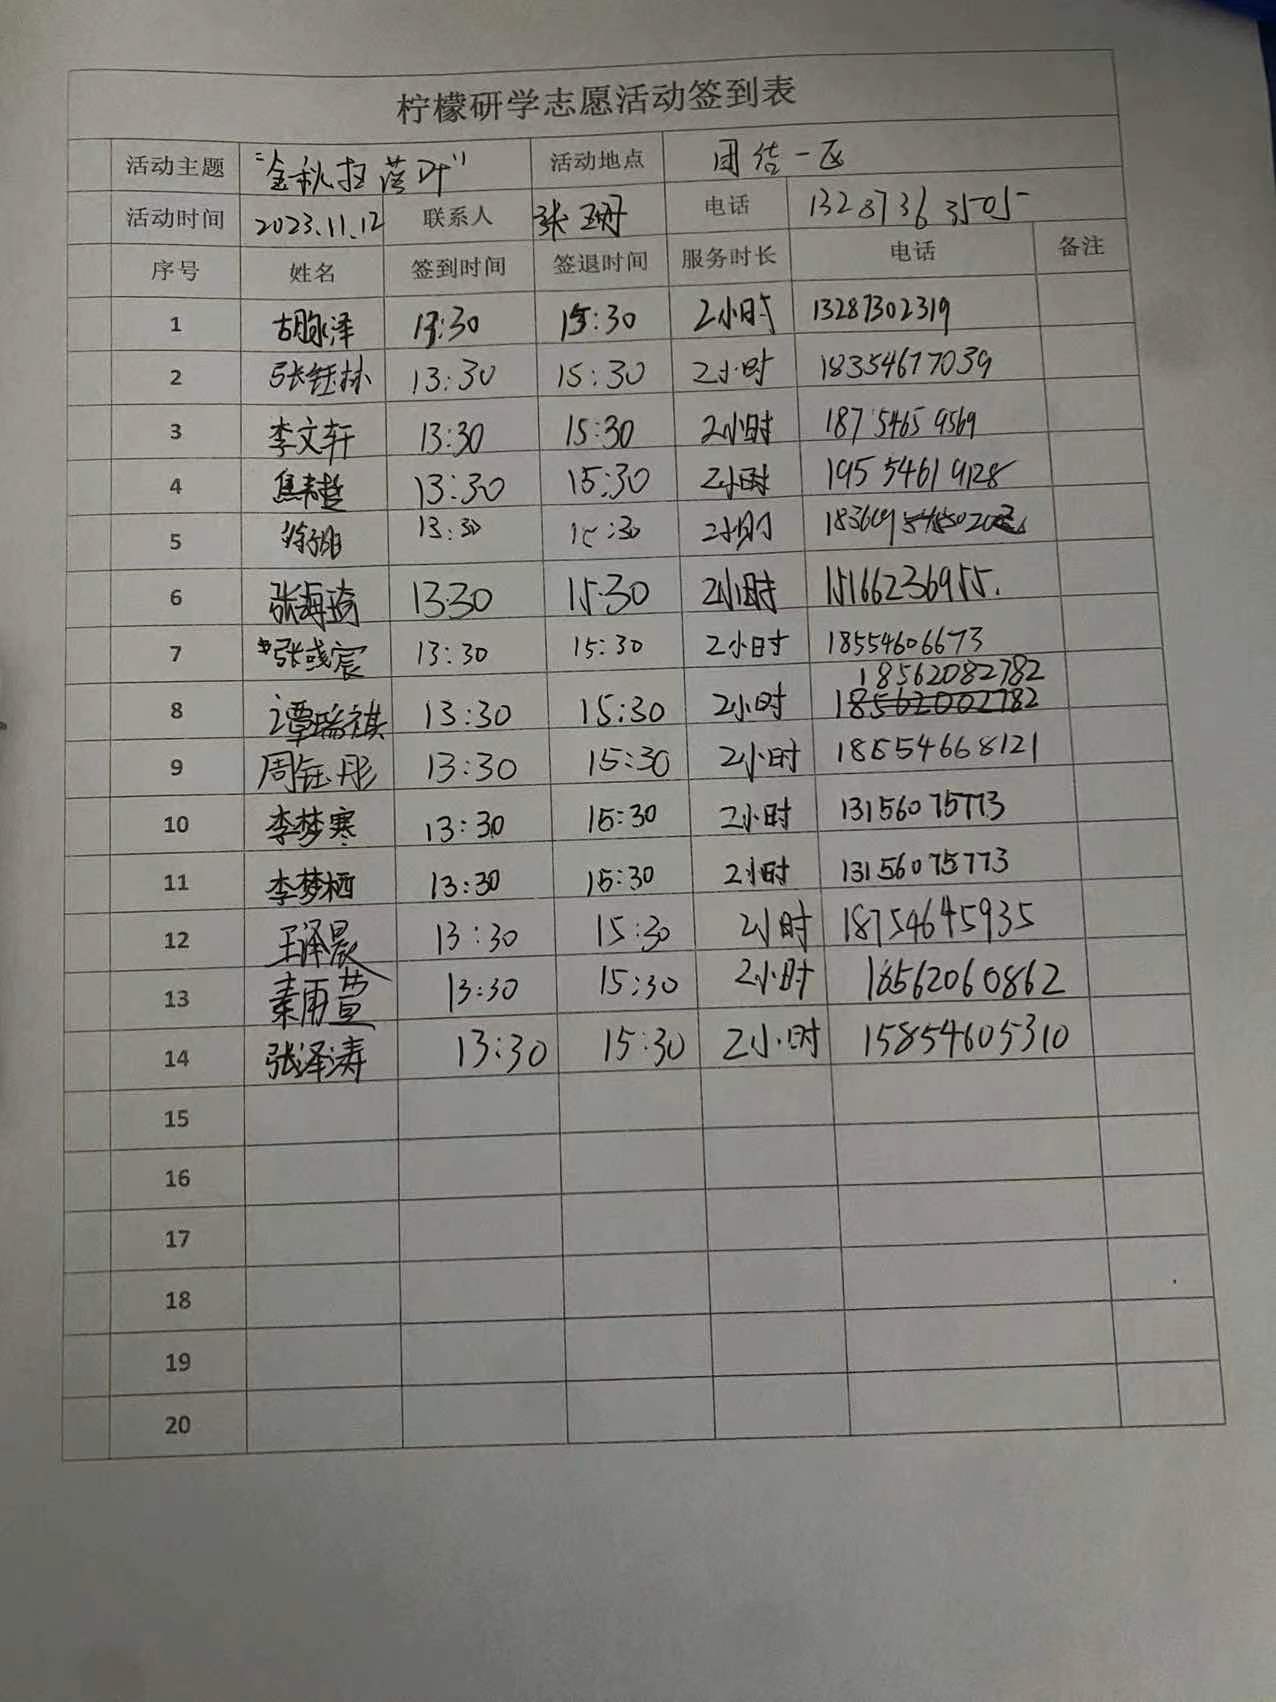 柠檬研学志愿活动签到表
活动主题 "金秋扫落叶" 活动地点 团结一区
活动时间 2023.11.12 联系人 张珊 电话 13287363505
序号 姓名 签到时间 签退时间 服务时长 电话 备注
1 胡脉泽 13:30 15:30 2小时 13287302319
2 张钰林 13:30 15:30 2小时 18354677039
3 李文轩 13:30 15:30 2小时 187 5465 9569
4 13:30 15:30 2小时 195 5461 9128
5 13:30 15:30 2小时
6 张海琦 13:30 15:30 2小时 15166236955.
7 张彧宸 13:30 15:30 2小时 18554606673
18562082782
8 谭瑞祺 13:30 15:30 2小时 18562002782
9 周钰彤 13:30 15:30 2小时 18554668121
10 李梦寒 13:30 15:30 2小时 13156075773
11 李梦栖 13:30 15:30 2小时 13156075773
12 王泽晨 13:30 15:30 2小时 18754645935
13 秦雨萱 13:30 15:30 2小时 18562060862
14 张泽涛 13:30 15:30 2小时 15854605310
15
16
17
18
19
20